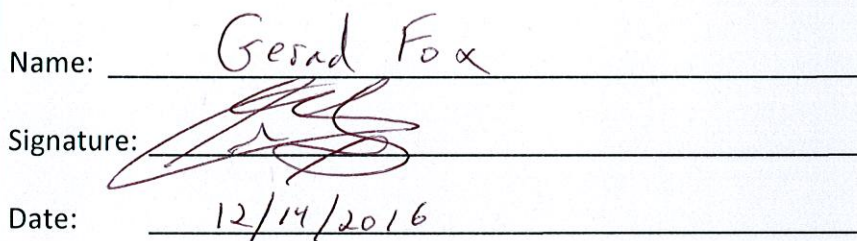 Name: Gerad Fox
Signature:
Date: 12/14/2016